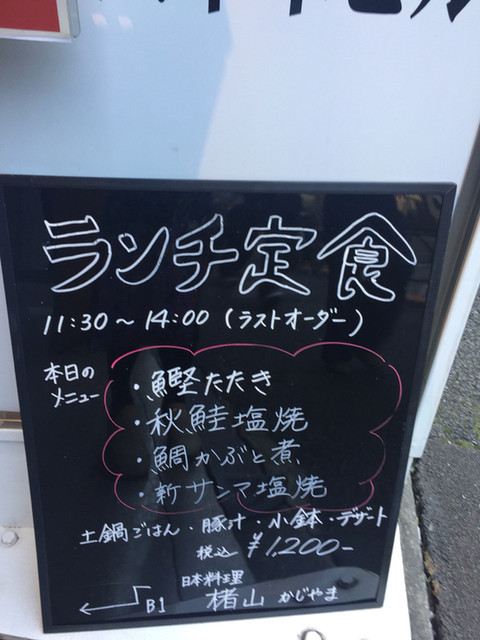 ランチ定食
11:30～14:00（ラストオーダー）
本日の
メニュー
・鰹たたき
・秋鮭塩焼
・鯛かぶと煮
・新サンマ塩焼
土鍋ごはん・豚汁・小鉢・デザート
税込 ¥1,200-
日本料理
楮山 かじやま
B1